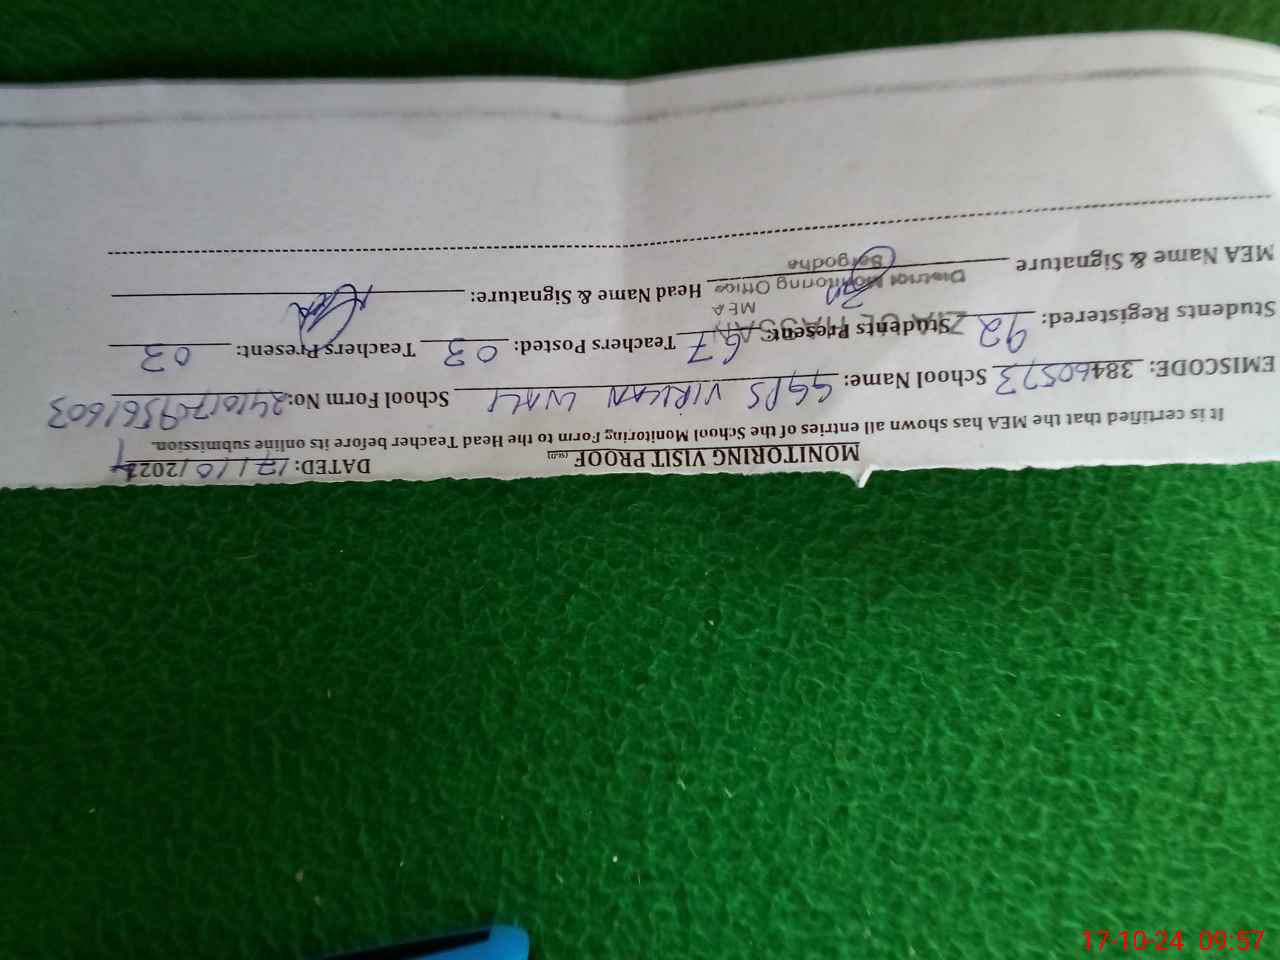 MONITORING VISIT PROOF DATED: 17/10/2024
It is certified that the MEA has shown all entries of the School Monitoring Form to the Head Teacher before its online submission.
EMISCODE: 38460573 School Name: GGPS VIRKAN WALI School Form No: 24101709561603
Students Registered: 92 Students Present: 67 Teachers Posted: 03 Teachers Present: 03
ZIA UL HASSAN
MEA
District Monitoring Office
Sargodha
MEA Name & Signature Head Name & Signature:
17-10-24 09:57